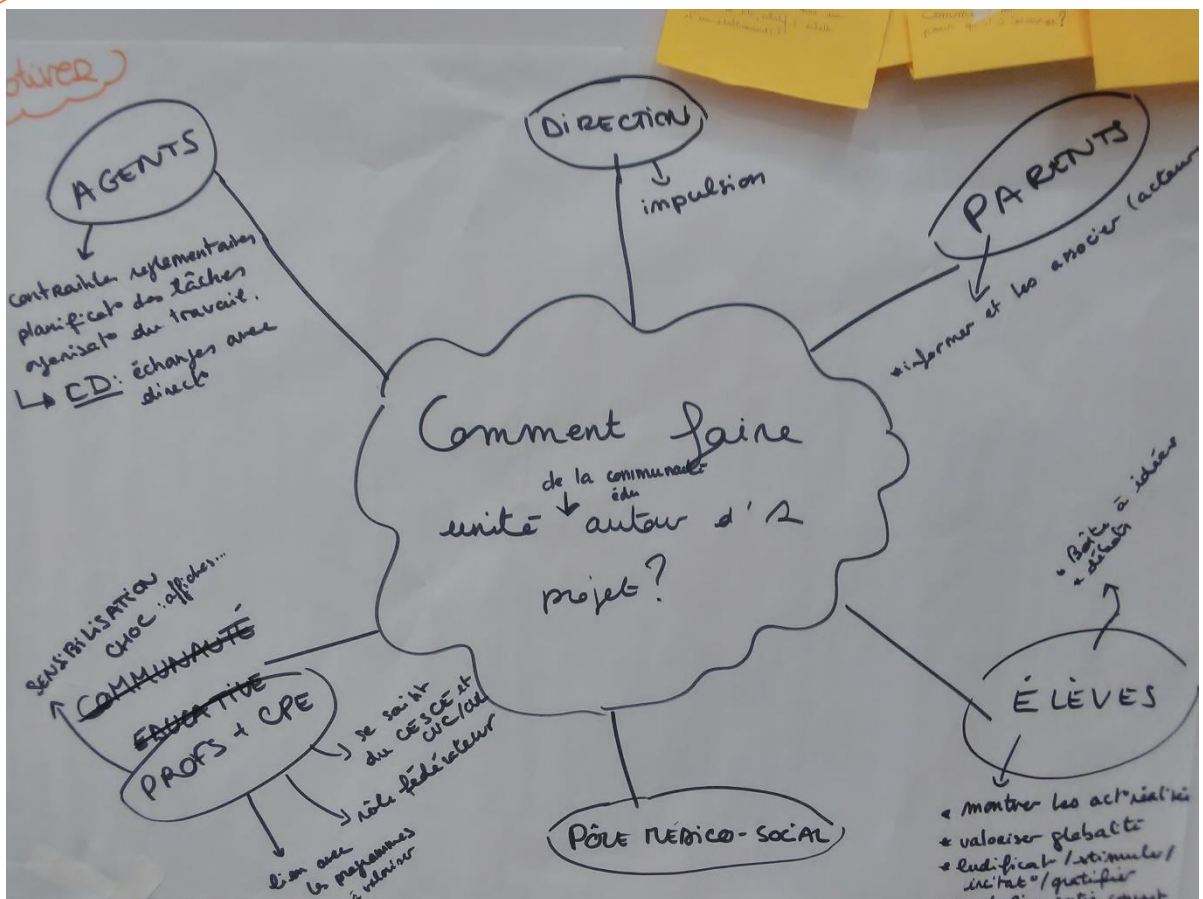 DIRECTION
impulsion
AGENTS
contraintes reglementaires
planificat° des tâches
organisat° du travail.
↳ CD : échanges avec
direct°
PARENTS
* informer et les associer (acteurs
Comment faire
de la communauté
édu
unité autour d'1
projet ?
SENSIBILISATION
CHOC : affiches...
COMMUNAUTÉ
EDUCATIVE
PROFS + CPE
du CESCE et
CVC/CVL
rôle fédérateur
lien avec
les programmes
à valoriser
PÔLE MÉDICO-SOCIAL
* Boîte à idées
* débats
ÉLÈVES
* montrer les act° réalisées
* valoriser globalité
* ludificat°/stimuler/
incitat°/gratifier